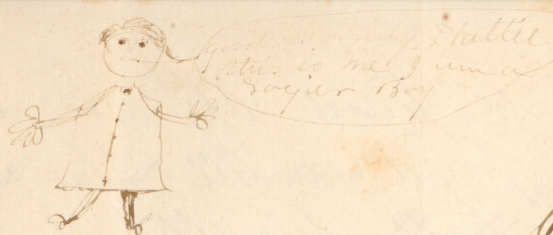 good Morning Hattie
this is me I am a
Sogier Boy